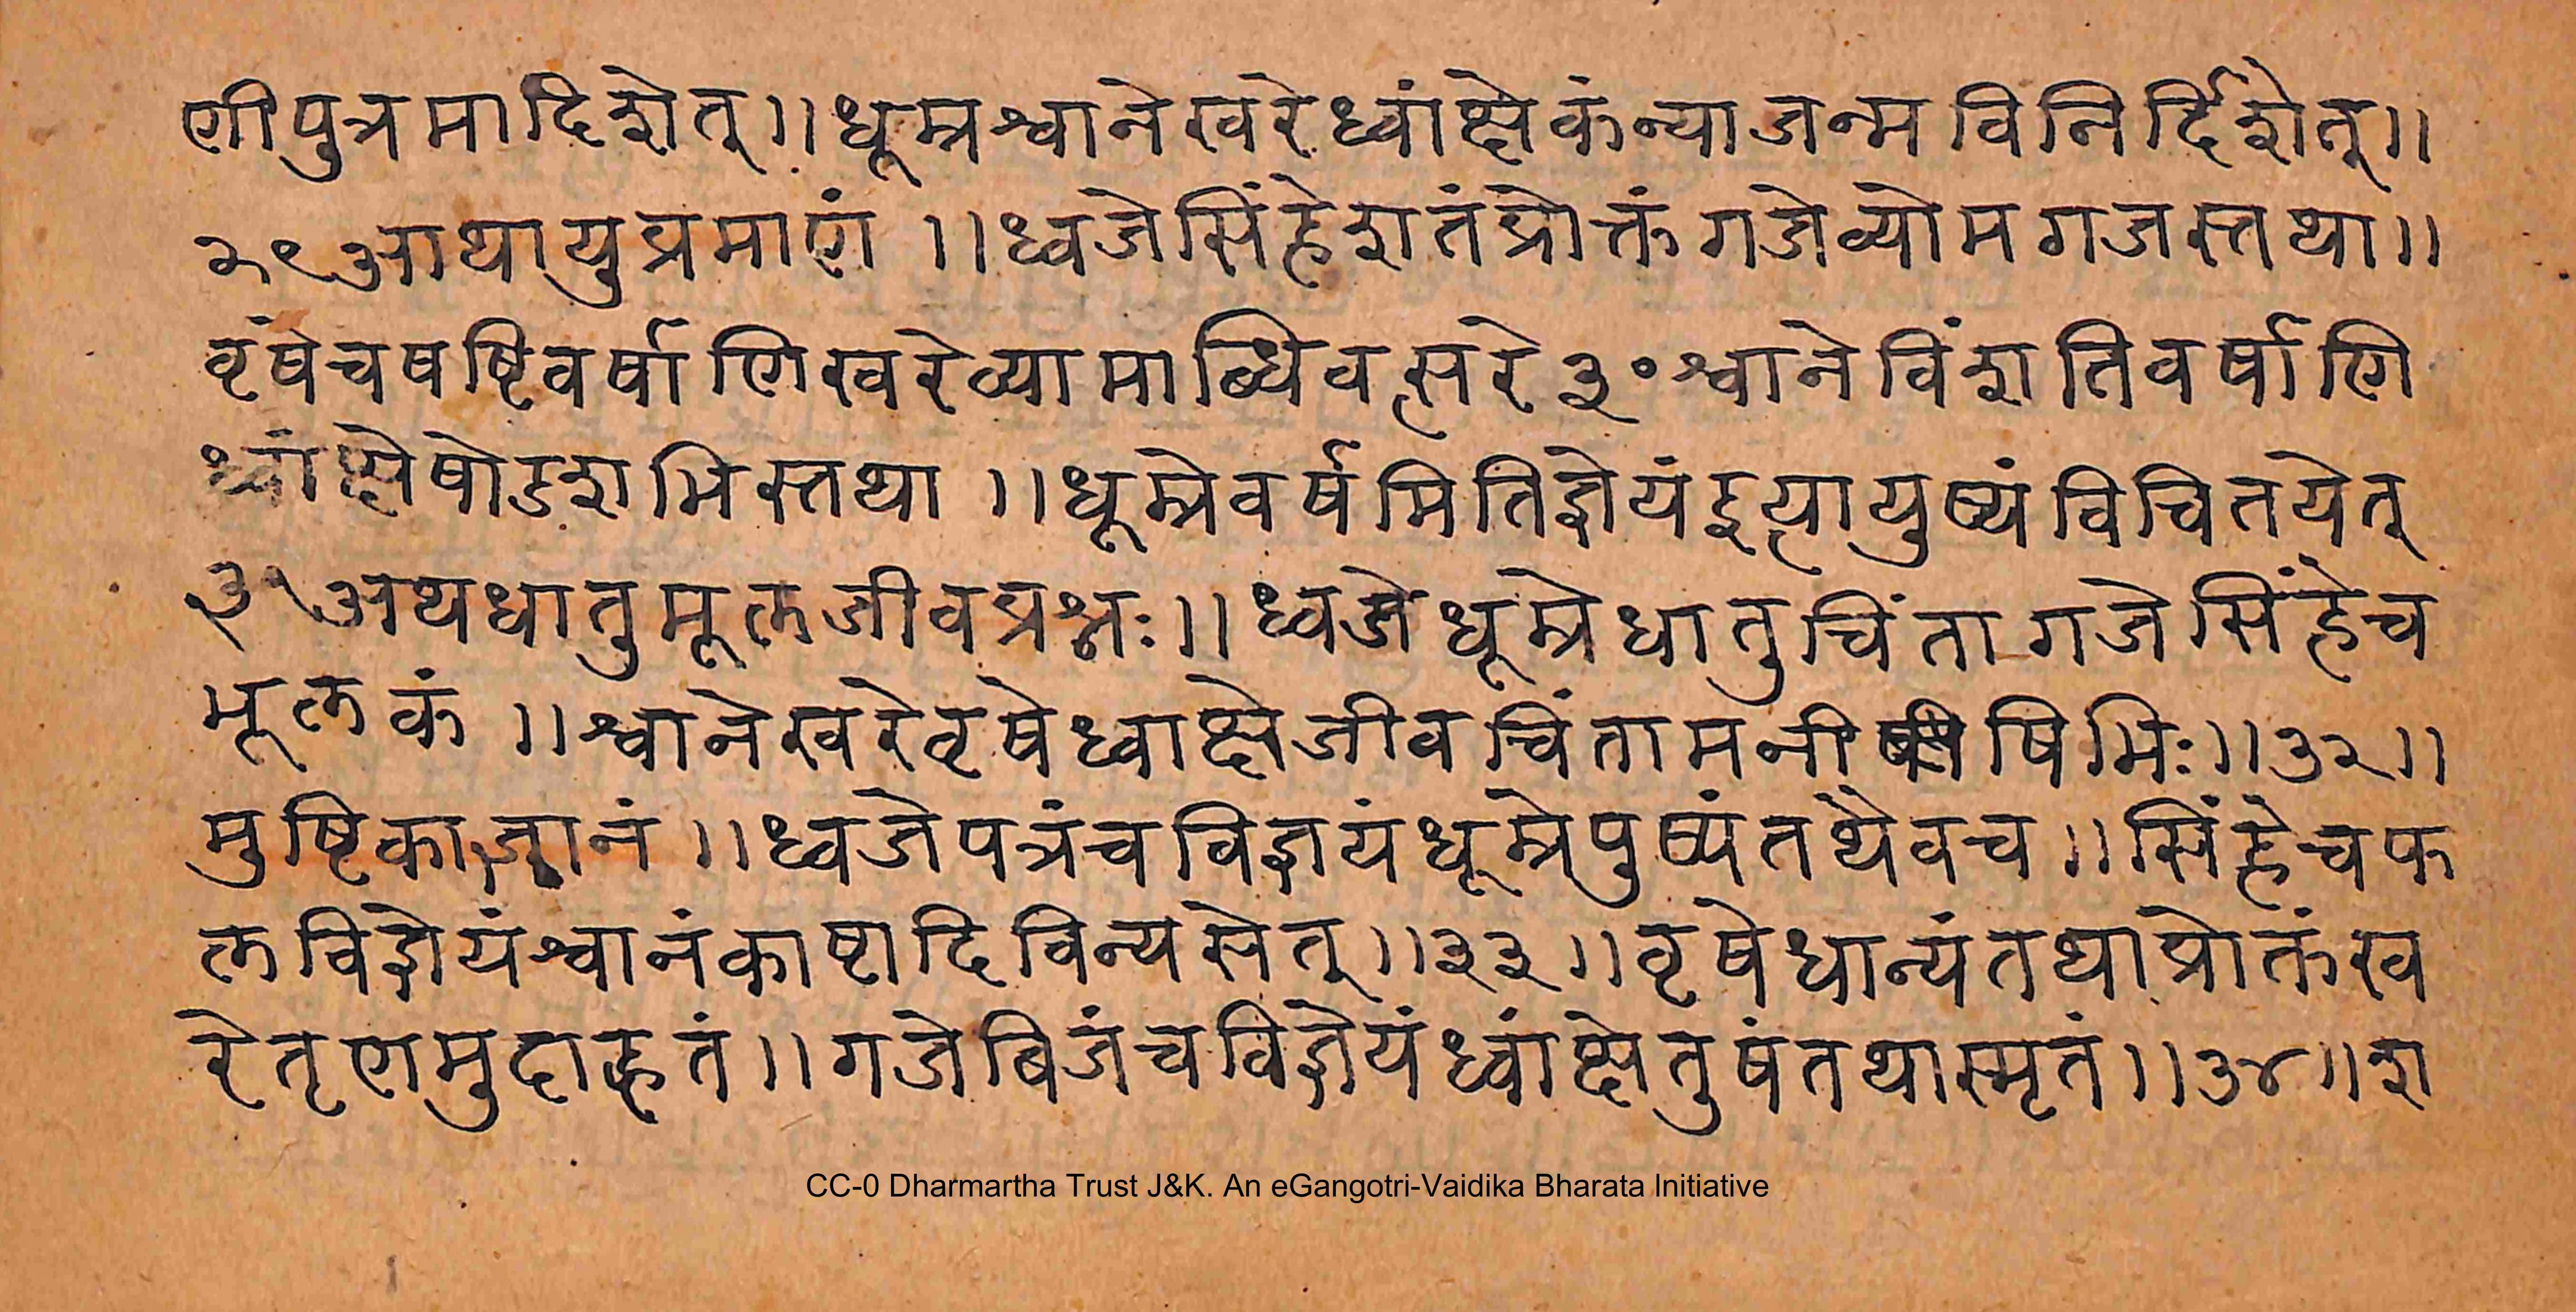 णीपुत्रमादिशेत्॥धूम्रश्वानेखरेध्वांक्षेकंन्याजन्मविनिर्दिशेत्॥
२९आथायुप्रमाणं ॥ध्वजेसिंहेशतंप्रोक्तंगजेव्योमगजस्तथा॥
वृषेचषष्टिवर्षाणिखरेव्यामाब्धिवत्सरे३०श्वानेविंशतिवर्षाणि
ध्वांक्षेषोडशभिस्तथा ॥धूम्रेवर्षमितिज्ञेयंइत्यायुष्यंविचितयेत्
३१अथधातुमूलजीवप्रश्नः॥ध्वजेधूम्रेधातुचिंतागजेसिंहेच
मूलकं ॥श्वानेखरेवृषेध्वाक्षेजीवचिंतामनीषिभिः॥३२॥
मुष्टिकाज्ञानं ॥ध्वजेपत्रंचविज्ञयंधूम्रेपुष्पंतथैवच॥सिंहेचफ
लविज्ञेयंश्वानंकाष्टादिविन्यसेत्॥३३॥वृषेधान्यंतथाप्रोक्तंख
रेतृणमुदाहृतं॥गजेबिजंचविज्ञेयंध्वांक्षेतुषंतथास्मृतं॥३४॥श
CC-0 Dharmartha Trust J&K. An eGangotri-Vaidika Bharata Initiative